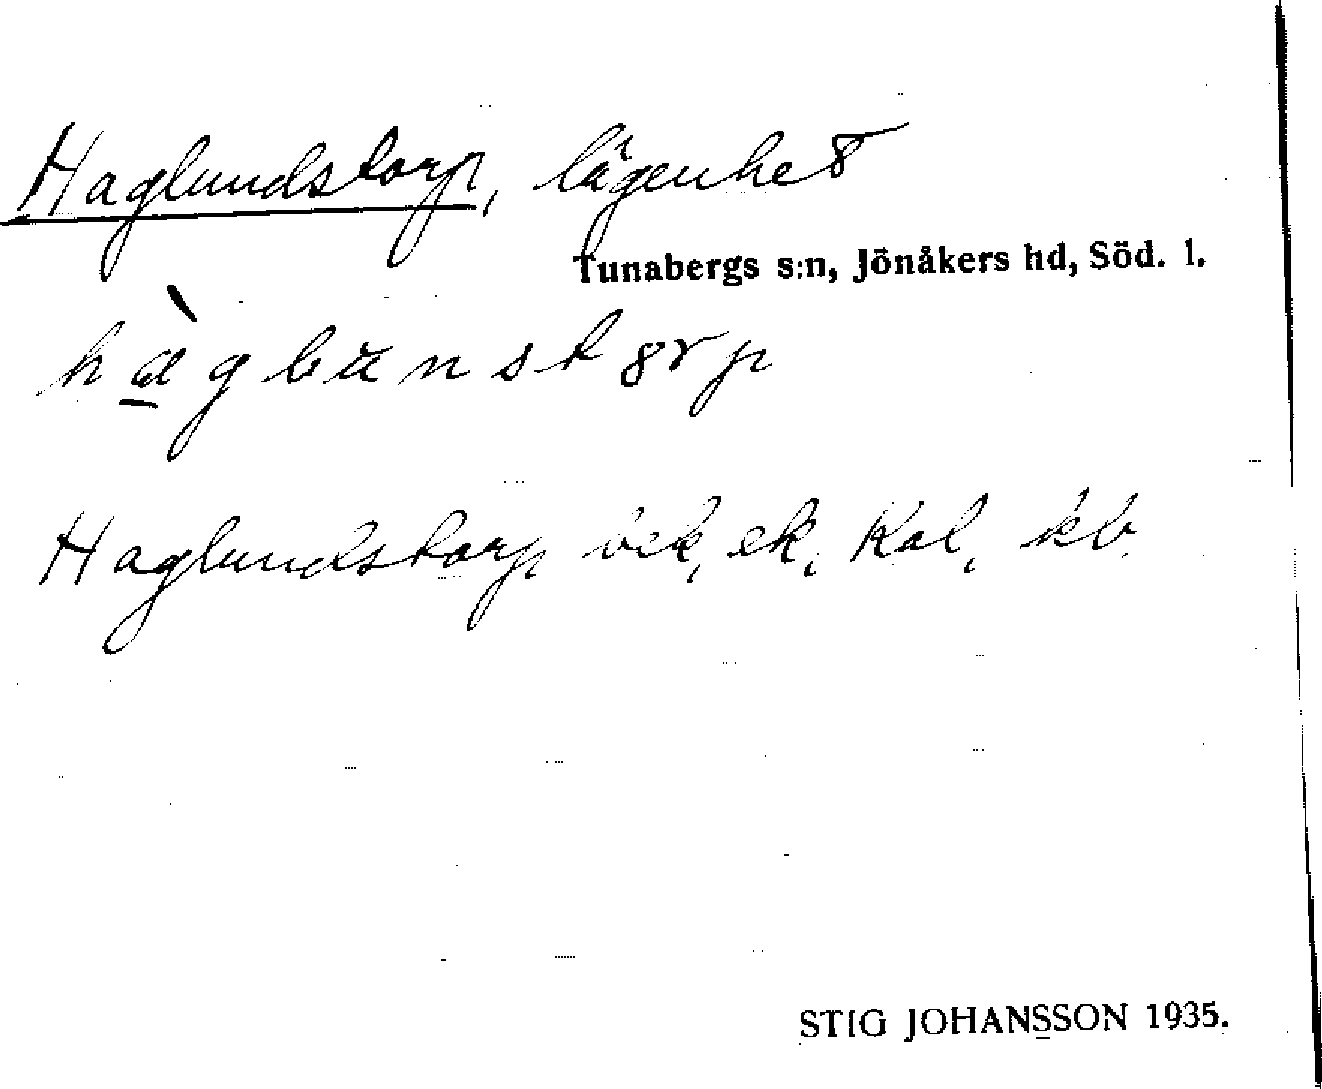 Haglundstorp, lägenhet
Tunabergs s:n, Jönåkers hd, Söd. l.
Haglundstorp öek, ek, Kal, kb.
STIG JOHANSSON 1935.